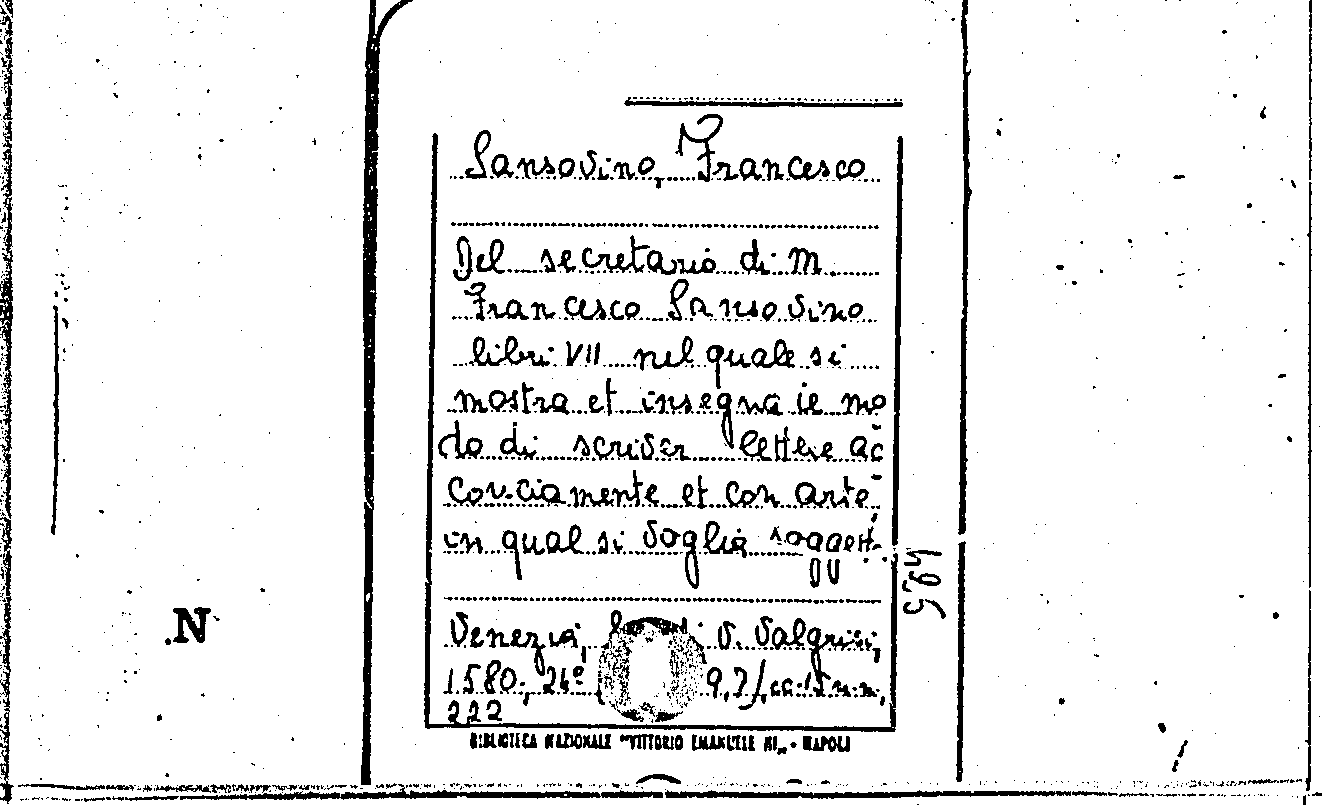 Sansovino, Francesco
Del secretario di M.
Francesco Sansovino
libri VII nel quale si
mostra et insegna ie mo
do di scriver lettere ac
conciamente et con arte,
in qual si voglia soggett.
495
Venezia, V. Valgrisi,
1580, 24° 9,7/, cc. 15 n.n.,
222
BIBLIOTECA NAZIONALE "VITTORIO EMANUELE III" - NAPOLI
.N